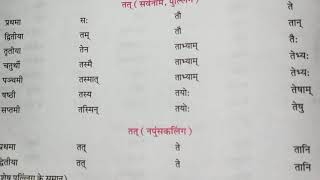 तत् ( सर्वनाम, पुल्लिंग )
प्रथमा सः तौ ते
द्वितीया तम् तौ तान्
तृतीया तेन ताभ्याम् तैः
चतुर्थी तस्मै ताभ्याम् तेभ्यः
पञ्चमी तस्मात् ताभ्याम् तेभ्यः
षष्ठी तस्य तयोः तेषाम्
सप्तमी तस्मिन् तयोः तेषु
तत् ( नपुंसकलिंग )
प्रथमा तत् ते तानि
द्वितीया तत् ते तानि
(शेष पुल्लिंग के समान)